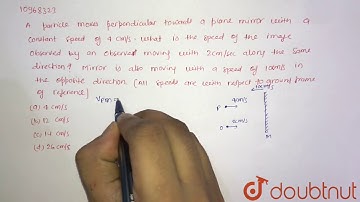 10968323
A particle moves perpendicular towards a plane mirror with a
constant speed of 4 cm/s. what is the speed of the image
observed by an observer moving with 2cm/sec along the same
direction? mirror is also moving with a speed of 10cm/s in
the opposite direction (All speeds are with respect to ground frame
of reference)
(a) 4 cm/s
(b) 12 cm/s
(c) 14 cm/s
(d) 26 cm/s
10cm/s
P 4cm/s
O 2cm/s
M
doubtnut